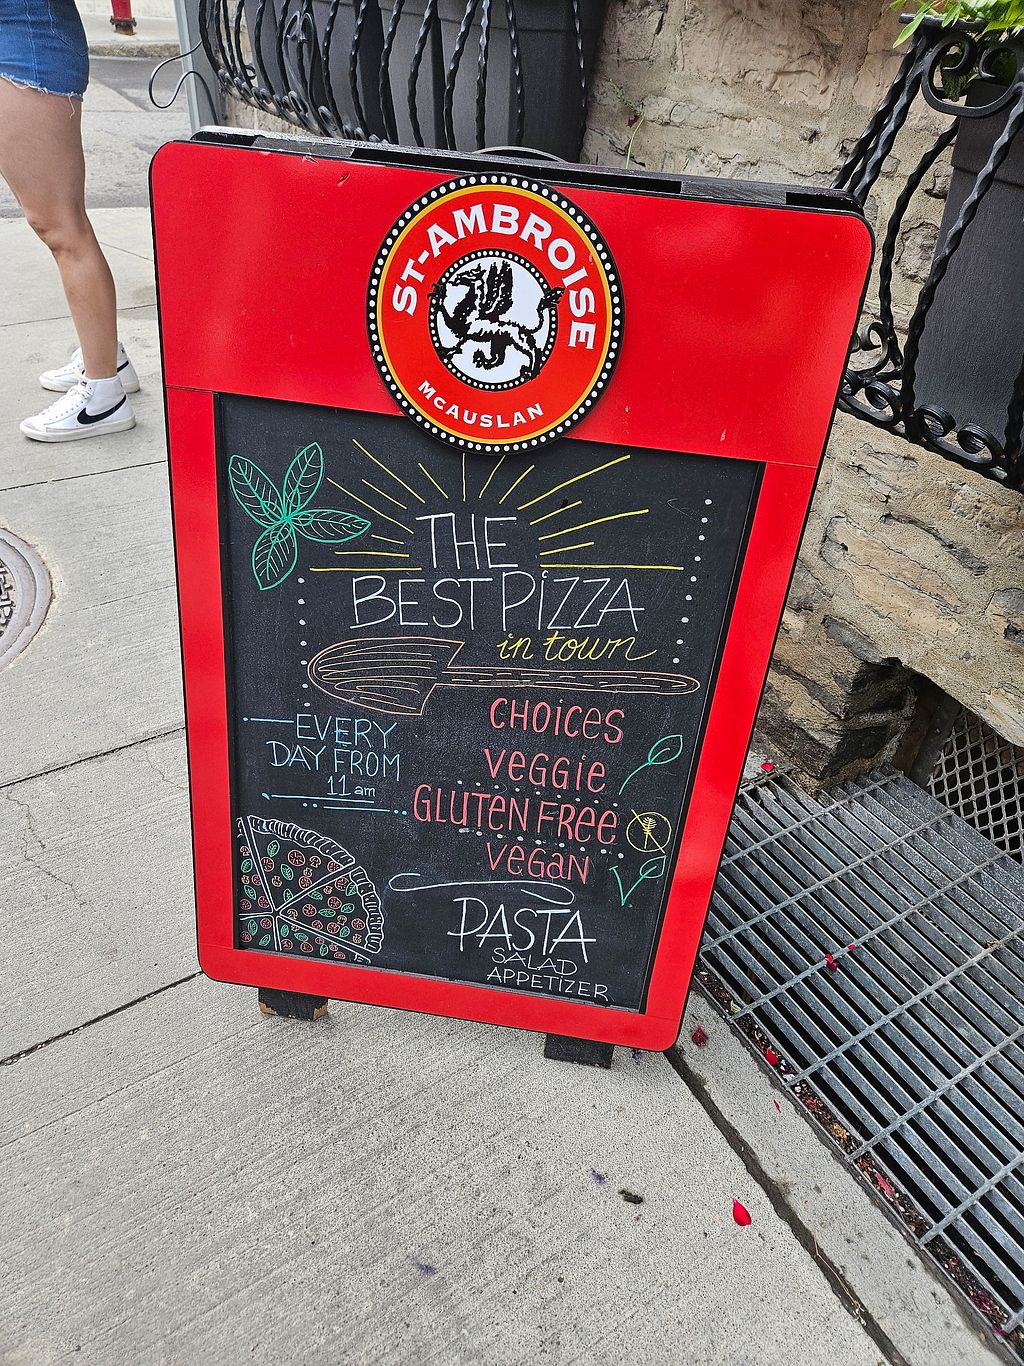 ST-AMBROISE
McAUSLAN
THE
BEST PiZZA
in town
CHOiCES
EVERY
DAY FROM
11am
VEGGiE
GLUTEN FREE
VEGAN
PASTA
SALAD
APPETIZER